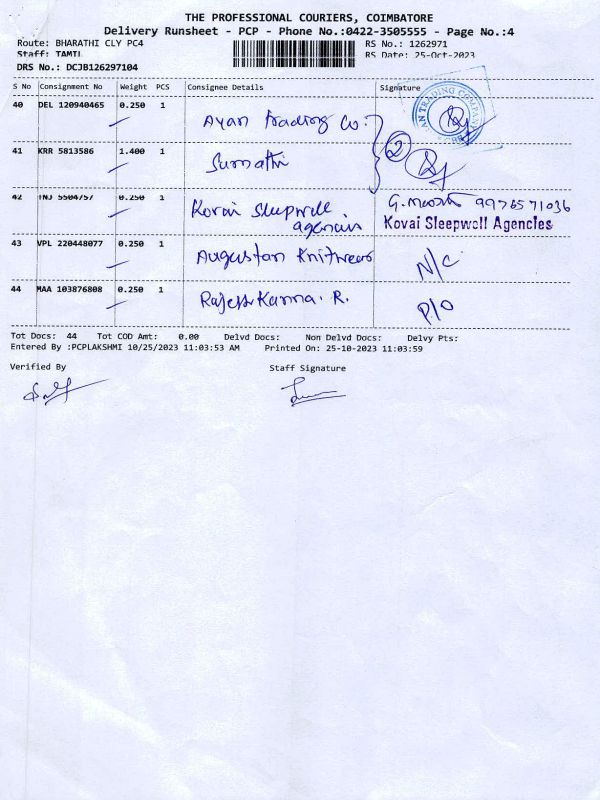 THE PROFESSIONAL COURIERS, COIMBATORE
Delivery Runsheet - PCP - Phone No.:0422-3505555 - Page No.:4
Route: BHARATHI CLY PC4 RS No.: 1262971
Staff: TAMIL RS Date: 25-Oct-2023
DRS No.: DCJB126297104
S No Consignment No Weight PCS Consignee Details Signature
40 DEL 120940465 0.250 1 Ayan Trading Co. AN TRADING COMPANY
41 KRR 5813586 1.400 1 Sumathi 2
42 TNJ 5504757 0.250 1 Kovai Sleepwell G. 9976571036
agencies Kovai Sleepwell Agencies
43 VPL 220448077 0.250 1 Augustan Knitwears N/C
44 MAA 103876808 0.250 1 Rajesh Kanna. R. P/O
Tot Docs: 44 Tot COD Amt: 0.00 Delvd Docs: Non Delvd Docs: Delvy Pts:
Entered By :PCPLAKSHMI 10/25/2023 11:03:53 AM Printed On: 25-10-2023 11:03:59
Verified By Staff Signature